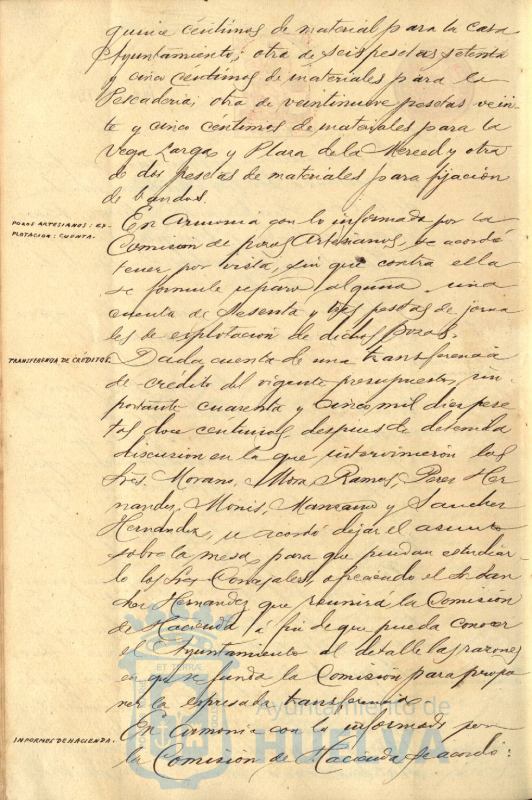 quince céntimos de material para la casa
Ayuntamiento; otra de seis pesetas setenta
y cinco centimos de materiales para la
Pescaderia; otra de veintinueve pesetas vein-
te y cinco centimos de materiales para la
Vega Larga y Plaza de la Merced y otra
de dos pesetas de materiales para fijacion
de bandos.
POZOS ARTESIANOS: EX-
PLOTACION: CUENTA.
En armonia con lo informado por la
Comision de pozos Artesianos, se acordó
tener por vista, sin que contra ella
se formule reparo alguno una
cuenta de sesenta y tres pesetas de jorna
les de explotacion de dichos pozos.
TRANSFERENCIA DE CRÉDITOS.
Dada cuenta de una transferencia
de crédito del vigente presupuesto, im-
portante cuarenta y cinco mil diez pese
tas doce centimos, despues de detenida
discusion en la que intervinieron los
Sres. Morano, Mora, Ramos, Perez Her
nandez, Monis, Manzano y Sanchez
Hernandez, se acordó dejar el asunto
sobre la mesa, para que puedan estudiar
lo los Sres. Concejales, ofreciendo el Sr. San
chez Hernandez que reunirá la Comision
de Hacienda á fin de que pueda conocer
el Ayuntamiento al detalle las razones
en que se funda la Comisión para propo
ner la expresada transferencia
INFORMES DE HACIENDA.
En armonia con lo informado por
la Comision de Hacienda se acordó:
ET TERRAE
Ayuntamiento de
HUELVA